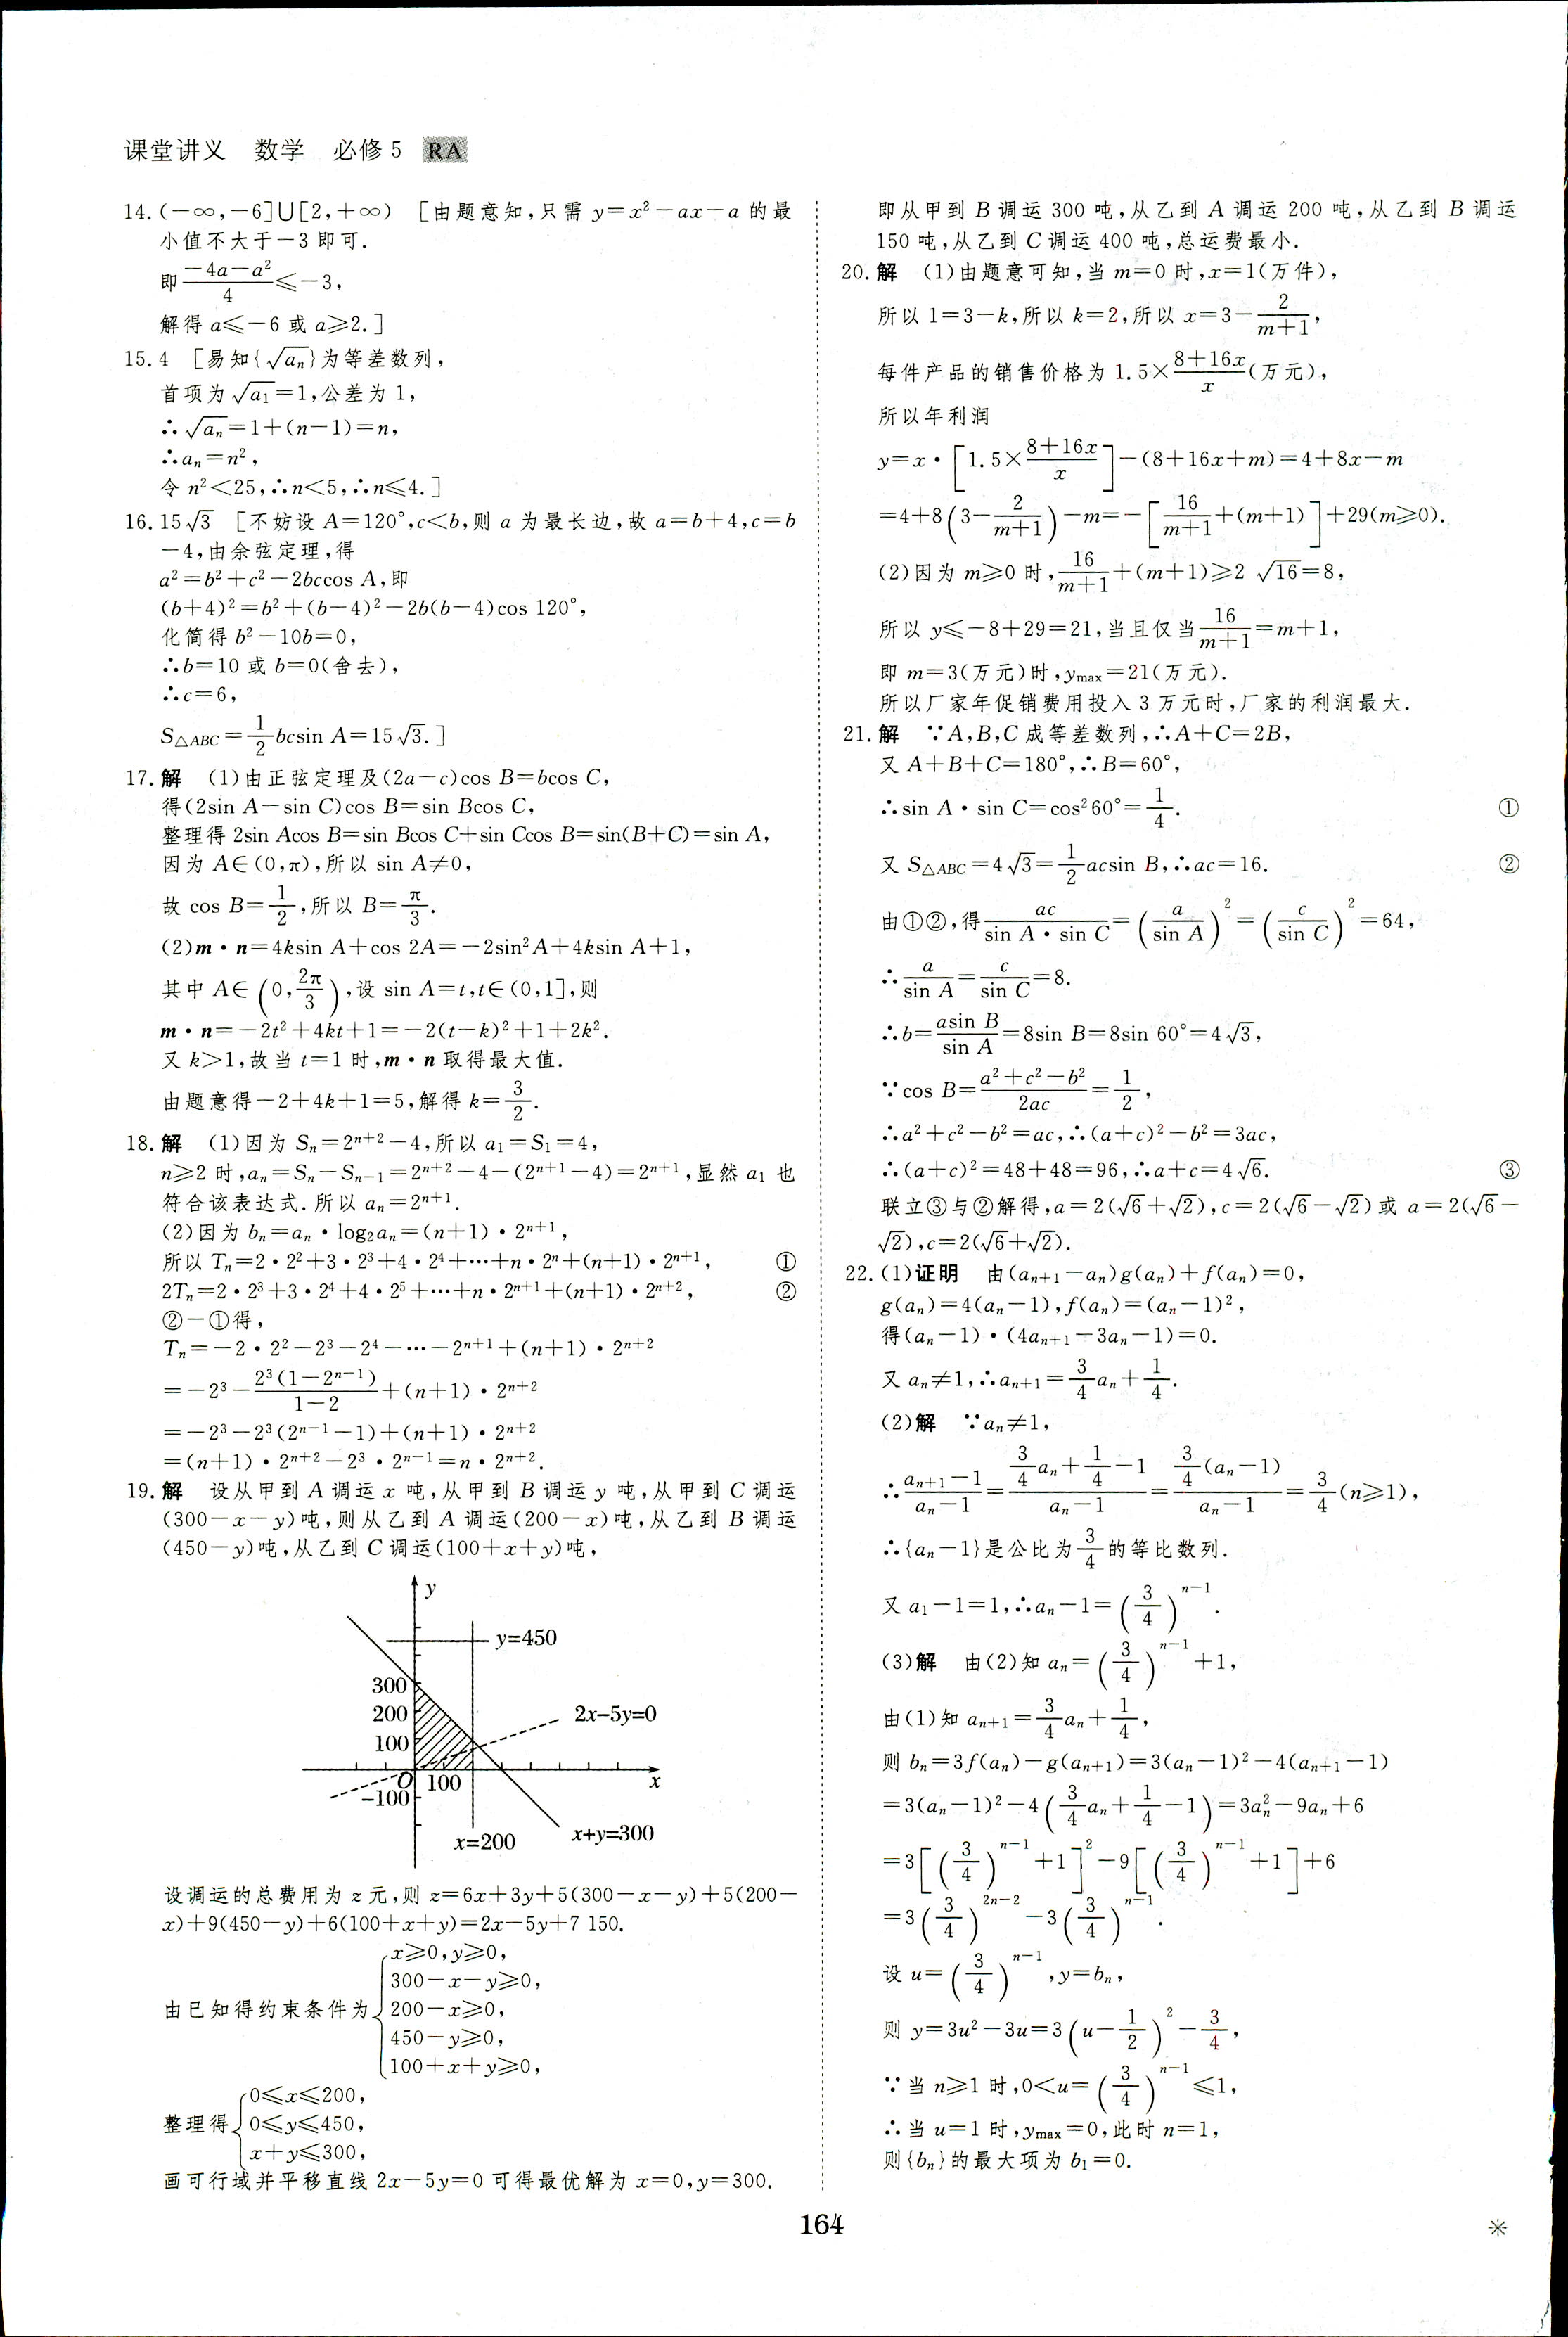 课堂讲义 数学 必修5 RA
14.(-∞,-6]∪[2,+∞) [由题意知,只需 y=x²-ax-a 的最
小值不大于-3即可.
即(-4a-a²)/4≤-3,
解得 a≤-6 或 a≥2.]
15.4 [易知{√aₙ}为等差数列,
首项为√a₁=1,公差为1,
∴√aₙ=1+(n-1)=n,
∴aₙ=n²,
令 n²<25,∴n<5,∴n≤4.]
16.15√3 [不妨设 A=120°,c<b,则 a 为最长边,故 a=b+4,c=b
-4,由余弦定理,得
a²=b²+c²-2bccos A,即
(b+4)²=b²+(b-4)²-2b(b-4)cos 120°,
化简得 b²-10b=0,
∴b=10 或 b=0(舍去),
∴c=6,
S△ABC=1/2 bcsin A=15√3.]
17.解 (1)由正弦定理及(2a-c)cos B=bcos C,
得(2sin A-sin C)cos B=sin Bcos C,
整理得 2sin Acos B=sin Bcos C+sin Ccos B=sin(B+C)=sin A,
因为 A∈(0,π),所以 sin A≠0,
故 cos B=1/2,所以 B=π/3.
(2)m·n=4ksin A+cos 2A=-2sin²A+4ksin A+1,
其中 A∈(0,2π/3),设 sin A=t,t∈(0,1],则
m·n=-2t²+4kt+1=-2(t-k)²+1+2k².
又 k>1,故当 t=1 时,m·n 取得最大值.
由题意得-2+4k+1=5,解得 k=3/2.
18.解 (1)因为 Sₙ=2ⁿ⁺²-4,所以 a₁=S₁=4,
n≥2 时,aₙ=Sₙ-Sₙ₋₁=2ⁿ⁺²-4-(2ⁿ⁺¹-4)=2ⁿ⁺¹,显然 a₁ 也
符合该表达式.所以 aₙ=2ⁿ⁺¹.
(2)因为 bₙ=aₙ·log₂aₙ=(n+1)·2ⁿ⁺¹,
所以 Tₙ=2·2²+3·2³+4·2⁴+…+n·2ⁿ+(n+1)·2ⁿ⁺¹, ①
2Tₙ=2·2³+3·2⁴+4·2⁵+…+n·2ⁿ⁺¹+(n+1)·2ⁿ⁺², ②
②-①得,
Tₙ=-2·2²-2³-2⁴-…-2ⁿ⁺¹+(n+1)·2ⁿ⁺²
=-2³-2³(1-2ⁿ⁻¹)/(1-2)+(n+1)·2ⁿ⁺²
=-2³-2³(2ⁿ⁻¹-1)+(n+1)·2ⁿ⁺²
=(n+1)·2ⁿ⁺²-2³·2ⁿ⁻¹=n·2ⁿ⁺².
19.解 设从甲到 A 调运 x 吨,从甲到 B 调运 y 吨,从甲到 C 调运
(300-x-y)吨,则从乙到 A 调运(200-x)吨,从乙到 B 调运
(450-y)吨,从乙到 C 调运(100+x+y)吨,
y
y=450
300
200
2x-5y=0
100
O 100 x
-100
x=200 x+y=300
设调运的总费用为 z 元,则 z=6x+3y+5(300-x-y)+5(200-
x)+9(450-y)+6(100+x+y)=2x-5y+7 150.
由已知得约束条件为{x≥0,y≥0,
300-x-y≥0,
200-x≥0,
450-y≥0,
100+x+y≥0,
整理得{0≤x≤200,
0≤y≤450,
x+y≤300,
画可行域并平移直线 2x-5y=0 可得最优解为 x=0,y=300.
即从甲到 B 调运 300 吨,从乙到 A 调运 200 吨,从乙到 B 调运
150 吨,从乙到 C 调运 400 吨,总运费最小.
20.解 (1)由题意可知,当 m=0 时,x=1(万件),
所以 1=3-k,所以 k=2,所以 x=3-2/(m+1),
每件产品的销售价格为 1.5×(8+16x)/x(万元),
所以年利润
y=x·[1.5×(8+16x)/x]-(8+16x+m)=4+8x-m
=4+8(3-2/(m+1))-m=-[16/(m+1)+(m+1)]+29(m≥0).
(2)因为 m≥0 时,16/(m+1)+(m+1)≥2√16=8,
所以 y≤-8+29=21,当且仅当16/(m+1)=m+1,
即 m=3(万元)时,ymax=21(万元).
所以厂家年促销费用投入 3 万元时,厂家的利润最大.
21.解 ∵A,B,C 成等差数列,∴A+C=2B,
又 A+B+C=180°,∴B=60°,
∴sin A·sin C=cos²60°=1/4. ①
又 S△ABC=4√3=1/2 acsin B,∴ac=16. ②
由①②,得ac/(sin A·sin C)=(a/sin A)²=(c/sin C)²=64,
∴a/sin A=c/sin C=8.
∴b=asin B/sin A=8sin B=8sin 60°=4√3,
∵cos B=(a²+c²-b²)/2ac=1/2,
∴a²+c²-b²=ac,∴(a+c)²-b²=3ac,
∴(a+c)²=48+48=96,∴a+c=4√6. ③
联立③与②解得,a=2(√6+√2),c=2(√6-√2)或 a=2(√6-
√2),c=2(√6+√2).
22.(1)证明 由(aₙ₊₁-aₙ)g(aₙ)+f(aₙ)=0,
g(aₙ)=4(aₙ-1),f(aₙ)=(aₙ-1)²,
得(aₙ-1)·(4aₙ₊₁-3aₙ-1)=0.
又 aₙ≠1,∴aₙ₊₁=3/4 aₙ+1/4.
(2)解 ∵aₙ≠1,
∴(aₙ₊₁-1)/(aₙ-1)=(3/4 aₙ+1/4-1)/(aₙ-1)=3/4(aₙ-1)/(aₙ-1)=3/4(n≥1),
∴{aₙ-1}是公比为3/4的等比数列.
又 a₁-1=1,∴aₙ-1=(3/4)ⁿ⁻¹.
(3)解 由(2)知 aₙ=(3/4)ⁿ⁻¹+1,
由(1)知 aₙ₊₁=3/4 aₙ+1/4,
则 bₙ=3f(aₙ)-g(aₙ₊₁)=3(aₙ-1)²-4(aₙ₊₁-1)
=3(aₙ-1)²-4(3/4 aₙ+1/4-1)=3aₙ²-9aₙ+6
=3[(3/4)ⁿ⁻¹+1]²-9[(3/4)ⁿ⁻¹+1]+6
=3(3/4)²ⁿ⁻²-3(3/4)ⁿ⁻¹.
设 u=(3/4)ⁿ⁻¹,y=bₙ,
则 y=3u²-3u=3(u-1/2)²-3/4,
∵当 n≥1 时,0<u=(3/4)ⁿ⁻¹≤1,
∴当 u=1 时,ymax=0,此时 n=1,
则{bₙ}的最大项为 b₁=0.
164
※